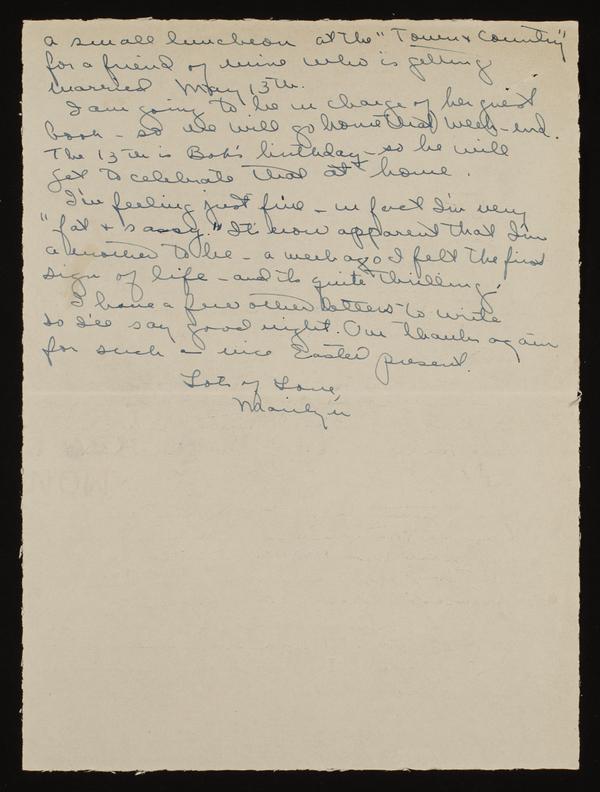 a small luncheon at the "Town & Country"
for a friend of mine who is getting
married May 13th.
I am going to be in charge of her guest
book - so we will go home that week-end.
The 13th is Bob's birthday - so he will
get to celebrate that at home.
I'm feeling just fine - in fact I'm very
"fat & sassy." It's now apparent that I'm
a mother to be - a week ago I felt the first
sign of life - and it's quite thrilling!
I have a few other letters to write
so I'll say good night. Our thanks again
for such a nice Easter present.
Lots of Love,
Marilyn